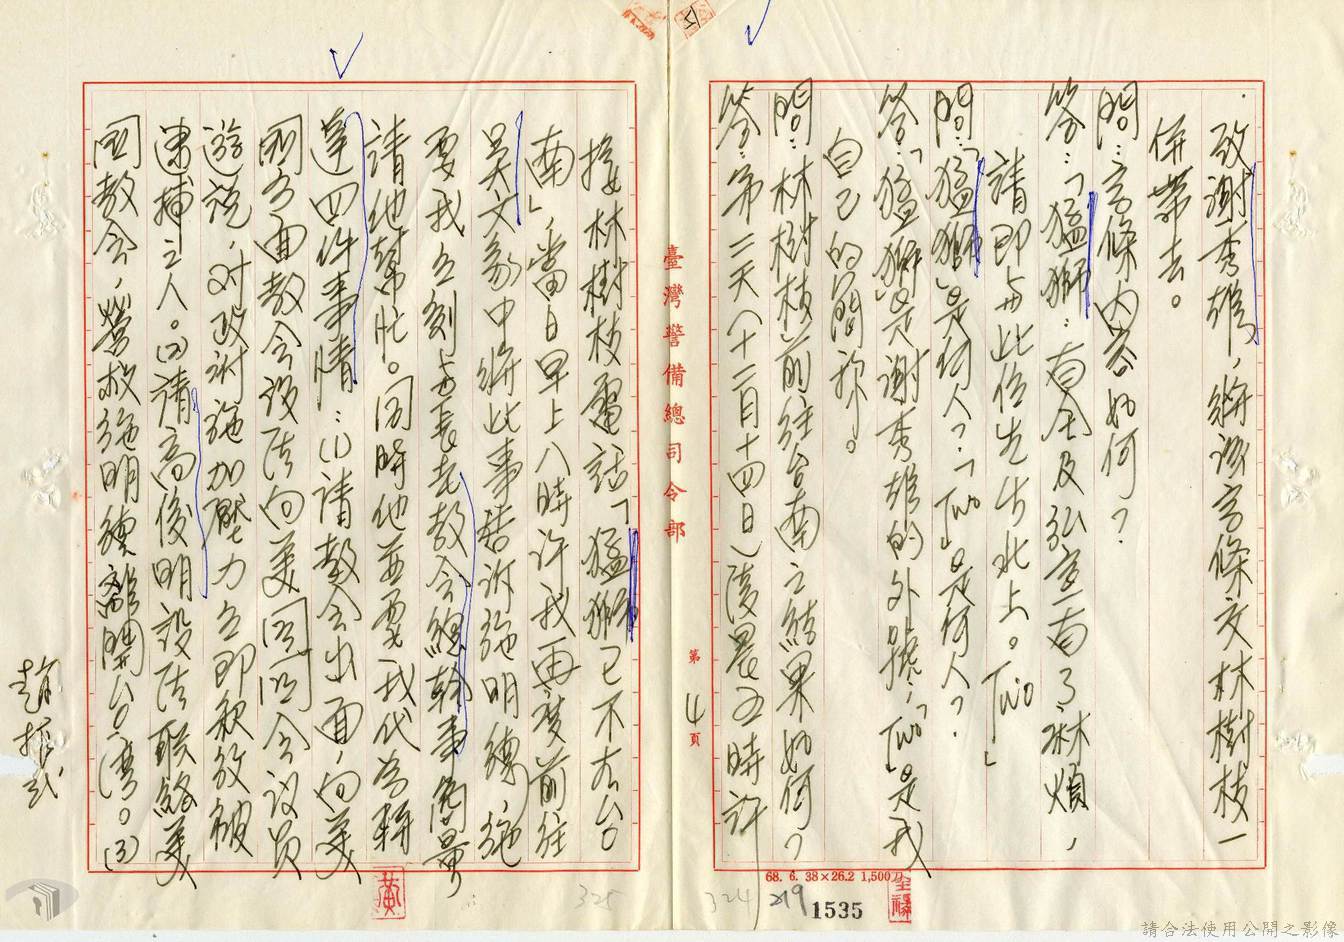 致謝秀雄，將該字條交林樹枝一
併帶去。
問：字條內容如何？
答：「猛獅：春生及弘宣有了麻煩，
請即與此位先生北上。Two」
問：「猛獅」是何人？「Two」是何人？
答：「猛獅」是謝秀雄的外號，「Two」是我
自己的簡稱。
問：林樹枝前往台南之結果如何？
答：第二天（十二月十四日）凌晨五時許
第 4 頁
臺灣警備總司令部
接林樹枝電話「猛獅已不在台
南」，當日早上八時許我再度前往
吳文家中將此事告訴施明德，施
要我立刻與長老教會總幹事商量
請他幫忙。同時他並要我代為轉
達四件事情：(1)請教會出面，向美
國方面教會設法向美國國會議員
遊說，對政府施加壓力立即釋放被
逮捕之人。(2)請高俊明設法聯絡美
國教會，營救施明德離開台灣。(3)
趙振貳
黃
68. 6. 38×26.2 1,500刀
324
219
1535
325
請合法使用公開之影像